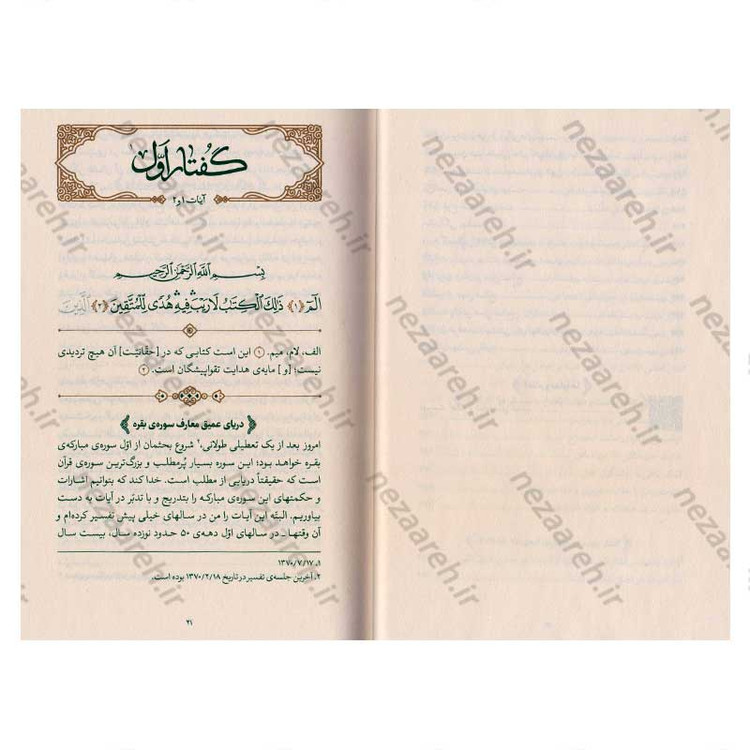 گفتار اوّل۱
آیات ۱ و ۲
بِسْمِ اللَّهِ الرَّحْمَٰنِ الرَّحِيمِ
الٓمٓ ﴿۱﴾ ذَٰلِكَ الْكِتَابُ لَا رَيْبَ فِيهِ هُدًى لِلْمُتَّقِينَ ﴿۲﴾ الَّذِينَ
الف، لام، میم. ۱ این است کتابی که در [حقّانیّت] آن هیچ تردیدی
نیست؛ [و] مایه‌ی هدایت تقواپیشگان است. ۲
دریای عمیق معارف سوره‌ی بقره
امروز بعد از یک تعطیلی طولانی،۲ شروع بحثمان از اوّل سوره‌ی مبارکه‌ی
بقره خواهد بود؛ این سوره بسیار پُرمطلب و بزرگ‌ترین سوره‌ی قرآن
است که حقیقتاً دریایی از مطلب است. خدا کند که بتوانیم اشارات
و حکمتهای این سوره‌ی مبارکه را بتدریج و با تدبّر در آیات به دست
بیاوریم. البتّه این آیات را من در سالهای خیلی پیش تفسیر کرده‌ام و
آن وقتها ـ در سالهای اوّل دهه‌ی ۵۰ حدود نوزده سال، بیست سال
۱. ۱۳۷۰/۷/۱۷
۲. آخرین جلسه‌ی تفسیر در تاریخ ۱۳۷۰/۲/۱۸ بوده است.
۲۱
nezaareh.ir
nezaareh.ir
nezaareh.ir
nezaareh.ir
nezaareh.ir
nezaareh.ir
nezaareh.ir
nezaareh.ir